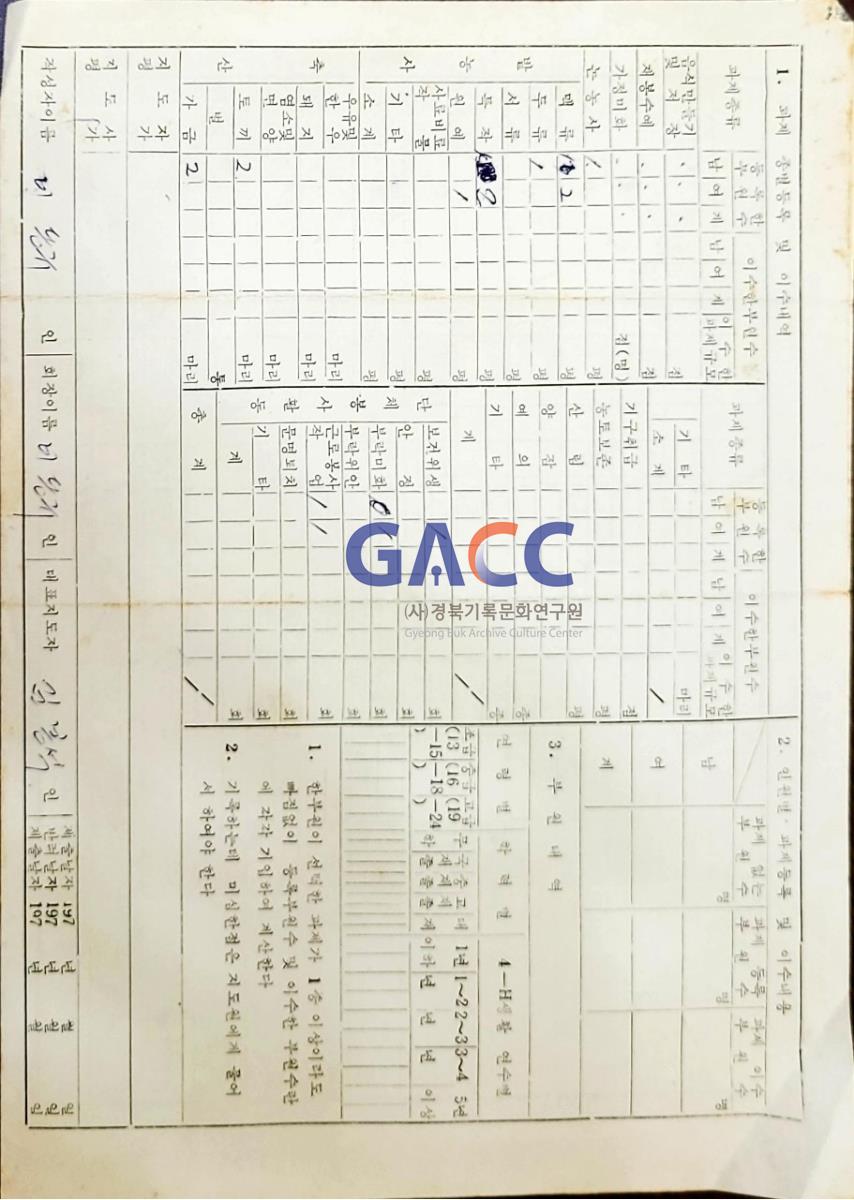 1. 과제 종별등록 및 이수내역
과제종류
등록한
부원수
남 여 계
이수한부원수
남 여 계
이수한
과제규모
음식만들기
및 저장
점
재봉수예
점
가정미화
점(평)
논농사
평
밭농사
맥류
2
평
두류
1
평
서류
평
특작
2
평
원예
1
평
사료비료
작물
평
기타
평
소계
평
축산
한우
우유및
마리
돼지
마리
염소및
면양
마리
토끼
2
마리
벌
통
가금
2
마리
과제종류
등록한
부원수
남 여 계
이수한부원수
남 여 계
이수한
과제규모
기타
마리
소계
기구취급
점
농토보존
평
산림
평
양잠
예의
종
기타
종
계
단체봉사활동
보건위생
회
안정
회
부락미화
회
부락위안
회
근로봉사
작업
회
문명퇴치
회
기타
회
계
회
총계
2. 인원별·과제등록 및 이수내용
과제 있는
부원수
명
과제 등록
부원수
명
과제 이수
부원수
명
남
여
계
3. 부원내역
연령별
학력별
4-H생활 연수별
초급 중급 고급
(13 (16 (19
-15 -18 -24
) ) )
무학
국졸
중졸
고졸
대
1년
이하
1~2
년
2~3
년
3~4
년
5년
이상
1. 한부원이 선택한 과제가 1종 이상이라도
빠짐없이 등록부원수 및 이수한 부원수란
에 각각 기입하여 계산한다
2. 기록하는데 미심한점은 지도원에게 물어
서 하여야 한다
지도자
평가
지도사
평가
작성자이름
인
회장이름
인
대표지도자
인
제출날자 197 년 월 일
반려날자 197 년 월 일
제출날자 197 년 월 일
GACC
(사)경북기록문화연구원
Gyeong Buk Archive Culture Center